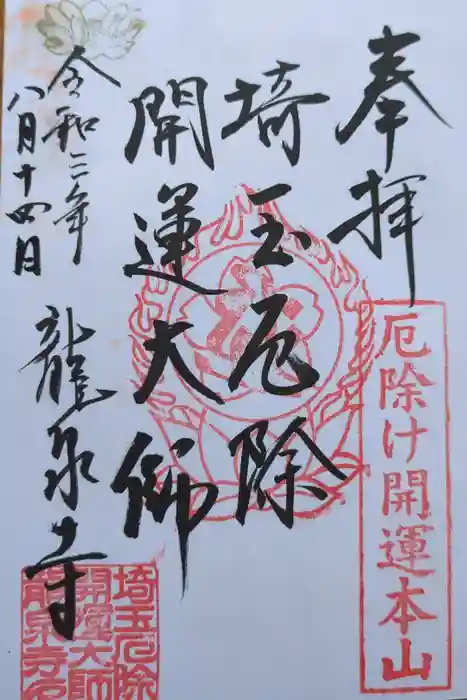 奉拝
厄除け開運本山
埼玉厄除
開運大師
令和三年
八月十四日
龍泉寺
埼玉厄除
開運大師
龍泉寺